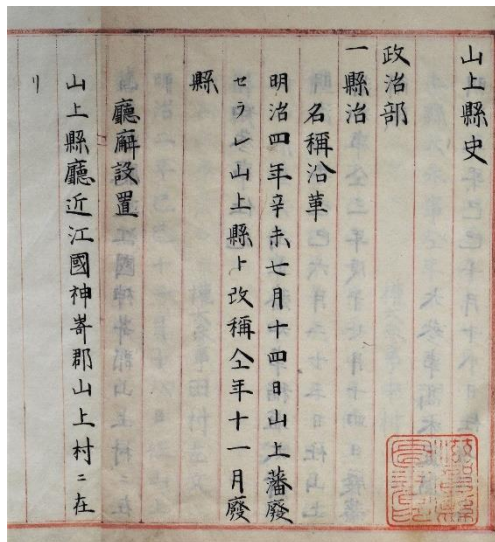 山上縣史
政治部
一縣治
名稱沿革
明治四年辛未七月十四日山上藩廢
セラレ山上縣ト改稱仝年十一月廢
縣
廳廨設置
山上縣廳近江國神嵜郡山上村ニ在
リ